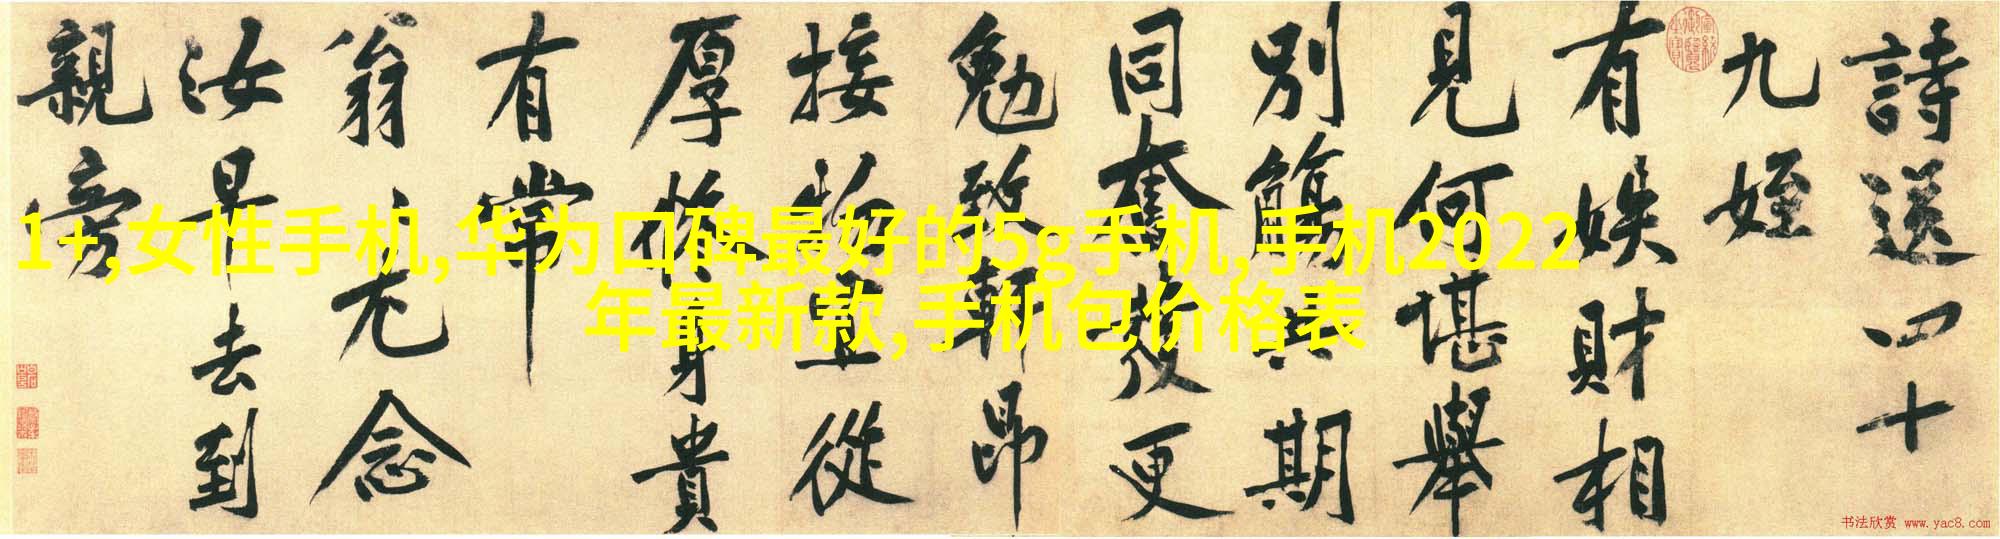 詩送四十
九姪
有娛財相
見何堪舉
別觴共期
同奮發更
勉致軒昂
接物宜從
厚修身貴
有常
翁々无念
汝早去到
親旁
1+,女性手机,华为口碑最好的5g手机,手机2022
年最新款,手机包价格表
书法欣赏 www.yac8.com